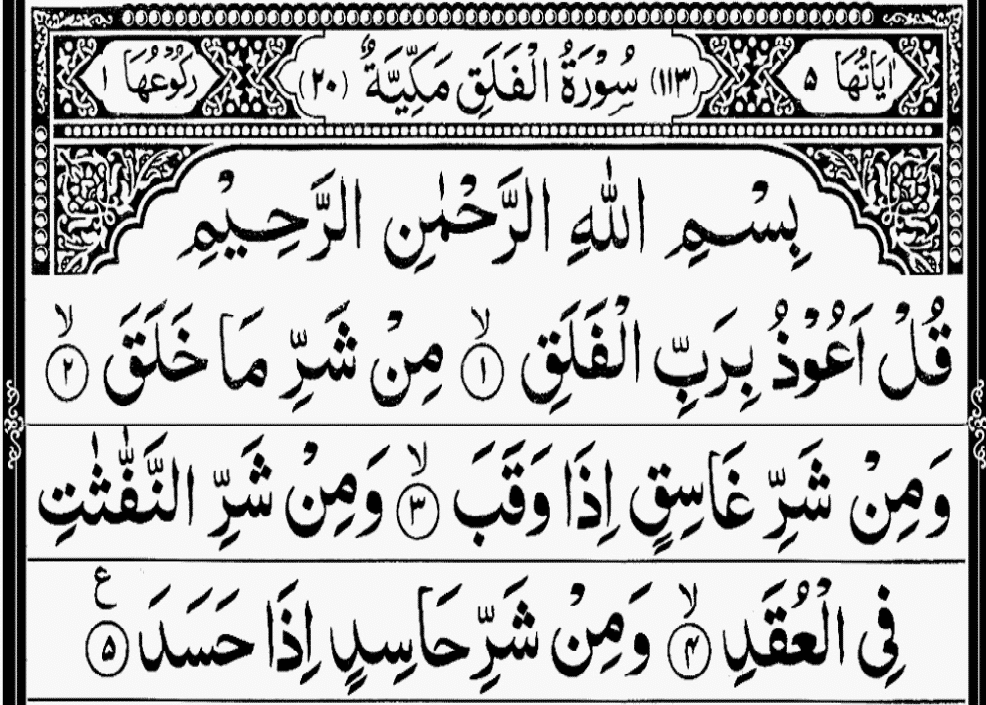 اٰيَاتُهَا ٥ (١١٣) سُوْرَةُ الْفَلَقِ مَكِّيَّةٌ (٢٠) رَكُوْعُهَا ١
بِسْمِ اللّٰهِ الرَّحْمٰنِ الرَّحِيْمِ
قُلْ اَعُوْذُ بِرَبِّ الْفَلَقِ ۙ ١ مِنْ شَرِّ مَا خَلَقَ ۙ ٢
وَمِنْ شَرِّ غَاسِقٍ اِذَا وَقَبَ ۙ ٣ وَمِنْ شَرِّ النَّفّٰثٰتِ
فِي الْعُقَدِ ۙ ۴ وَمِنْ شَرِّ حَاسِدٍ اِذَا حَسَدَ ع ٥